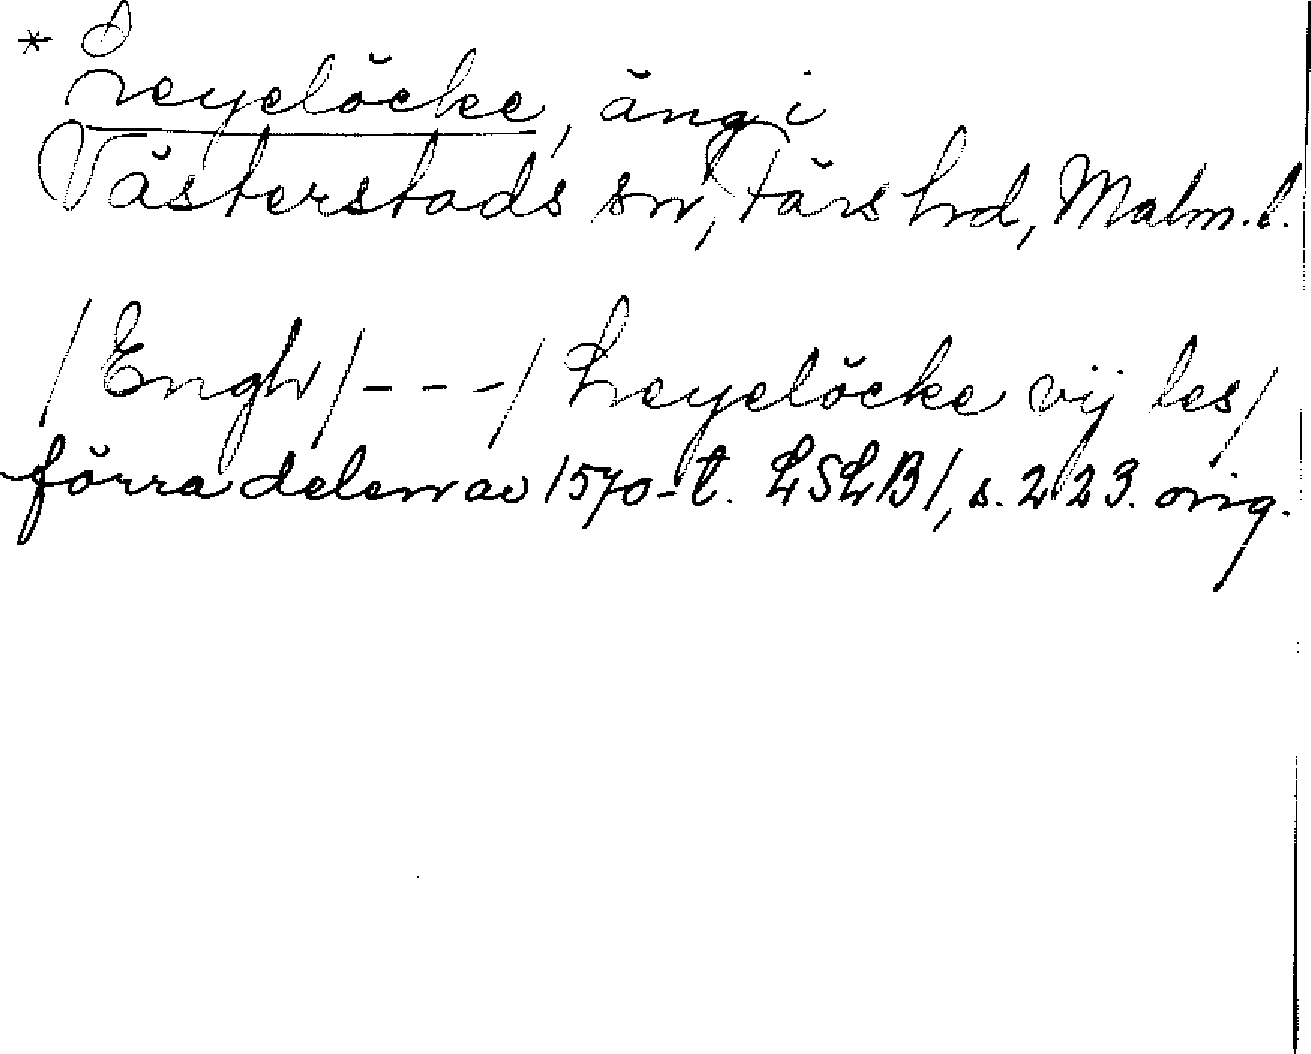 * Hreyelöcke, äng i
Västerstads sn, Färs hrd, Malm. l.
/ Engh / - - - / Hreyelöcke vij les /
förra delen av 1570-t. LSLB 1, s. 223. orig.